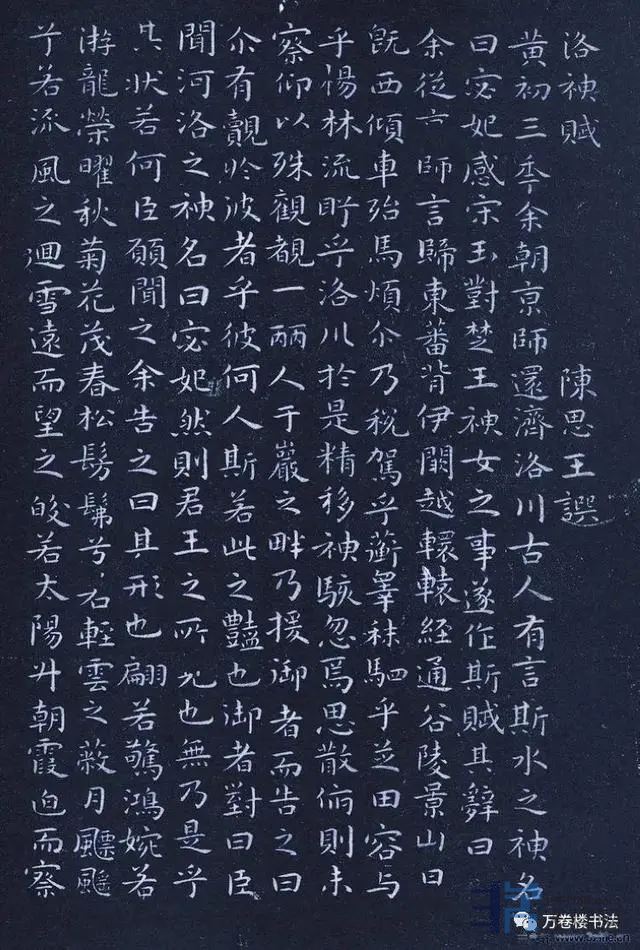 洛神賦　陳思王譔
黄初三季余朝京師還濟洛川古人有言斯水之神名
曰宓妃感宋玉對楚王神女之事遂作斯賦其辭曰
余從京師言歸東蕃背伊闕越轘轅經通谷陵景山日
既西傾車殆馬煩尒乃税駕乎蘅皋秣駟乎芝田容与
乎楊林流眄乎洛川於是精移神駭忽焉思散俯則未
察仰以殊觀覩一麗人于巖之畔乃援御者而告之曰
尒有覿於彼者乎彼何人斯若此之豔也御者對曰臣
聞河洛之神名曰宓妃然則君王之所見也無乃是乎
其狀若何臣願聞之余告之曰其形也翩若驚鴻婉若
游龍榮曜秋菊花茂春松髣髴兮若輕雲之蔽月飄颻
兮若流風之迴雪遠而望之皎若太陽升朝霞迫而察
万卷楼书法